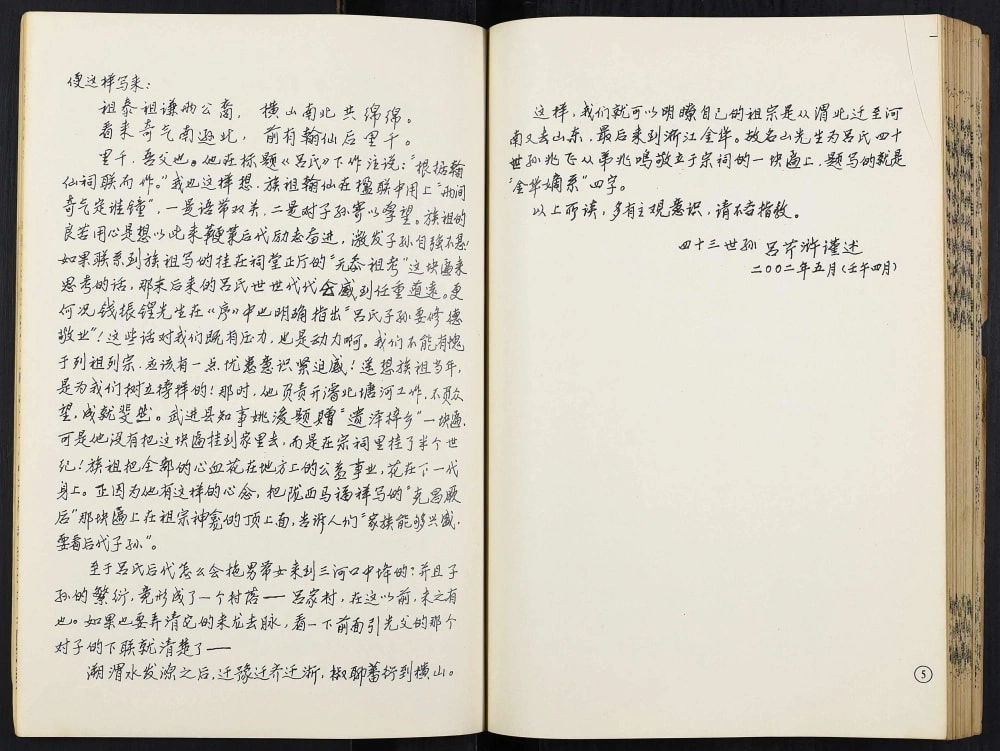 便这样写来：
祖泰祖谦两公裔， 横山南北共绵绵。
看来奇气南逊北， 前有翰仙后里千。
里千，吾父也。他在标题《吕氏》下作注说：“根据翰
仙祠联而作。”我也这样想，族祖翰仙在楹联中用上“两间
奇气定谁钟”，一是语带双关，二是对子孙寄以厚望。族祖的
良苦用心是想以此来鞭策后代励志奋进，激发子孙自强不息！
如果联系到族祖写的挂在祠堂正厅的“元泰祖考”这块匾来
思考的话，那末后来的吕氏世世代代会感到任重道远。更
何况钱振锽先生在《序》中也明确指出“吕氏子孙要修德
敬业”！这些话对我们既有压力，也是动力啊。我们不能有愧
于列祖列宗，应该有一点忧患意识紧迫感！遥想族祖当年，
是为我们树立榜样的！那时，他负责开浚北塘河工作，不负众
望，成就斐然。武进县知事姚浚题赠“遗泽梓乡”一块匾，
可是他没有把这块匾挂到家里去，而是在宗祠里挂了半个世
纪！族祖把全部的心血花在地方上的公益事业，花在下一代
身上。正因为他有这样的心念，把陇西马福祥写的“克昌厥
后”那块匾上在祖宗神龛的顶上面，告诉人们“家族能够兴盛，
要看后代子孙”。
至于吕氏后代怎么会拖男带女来到三河口中埄的？并且子
孙的繁衍，竟形成了一个村落——吕家村，在这以前，未之有
也。如果也要弄清它的来龙去脉，看一下前面引先父的那个
对子的下联就清楚了——
溯渭水发源之后，迁豫迁齐迁浙，椒聊蕃衍到横山。
这样，我们就可以明瞭自己的祖宗是从渭北迁至河
南又去山东，最后来到浙江金华。故名山先生为吕氏四十
世孙兆飞从弟兆鸣敬立于宗祠的一块匾上，题写的就是
“金华嫡系”四字。
以上所谈，多有主观意识，请不吝指教。
四十三世孙 吕芹浒谨述
二〇〇二年五月（壬午四月）
5